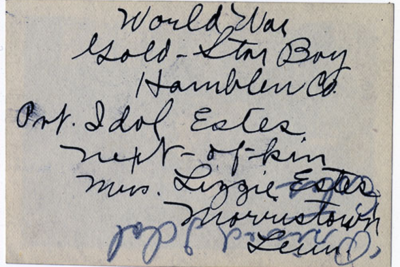 World War
Gold-Star Boy
Hamblen Co.
Pvt. Idol Estes
next-of-kin
Mrs. Lizzie Estes
Morristown
Tenn.